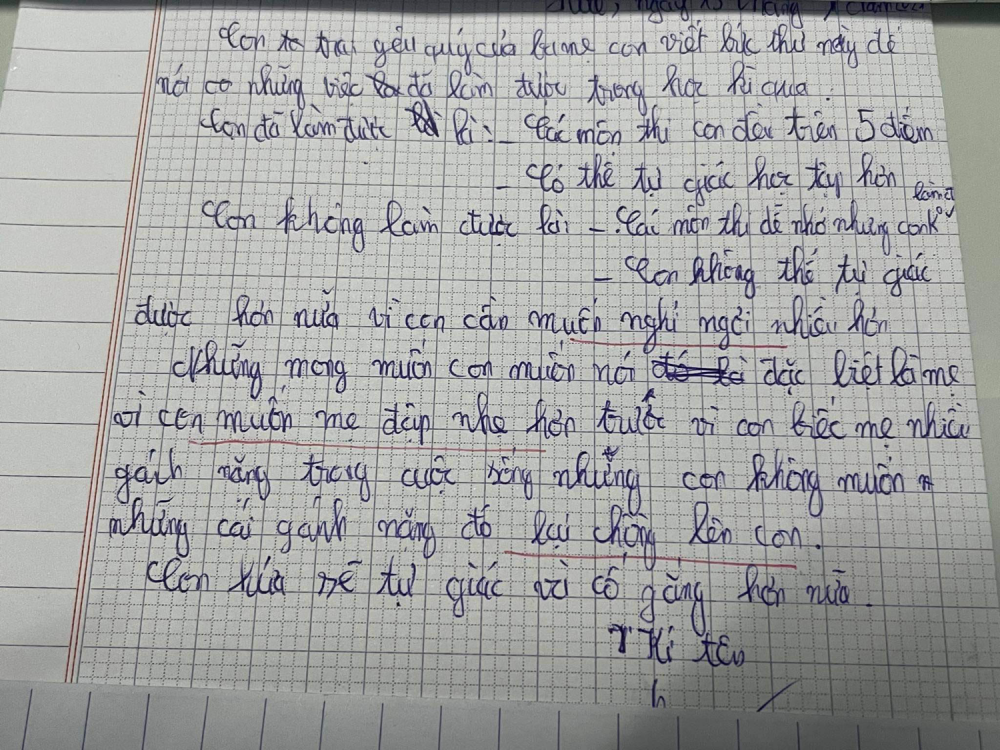 Con trai yêu quý của ba mẹ con viết bức thư này để
nói co những việc đã làm được trong học kì qua.
Con đã làm được là: - Các môn thi con đều trên 5 điểm
- Có thể tự giác học tập hơn
Con không làm được là: - Các môn thi dễ nhớ nhưng con k làm
- Con không thể tự giác
được hơn nữa vì con cần muốn nghỉ ngơi nhiều hơn
Những mong muốn con muốn nói đặc biệt là mẹ
vì con muốn mẹ đập nhẹ hơn trước vì con biếc mẹ nhiều
gánh nặng trong cuộc sống nhưng con không muốn
những cái gánh nặng đó lại chồng lên con.
Con hứa sẽ tự giác và cố gắng hơn nữa.
Kí tên